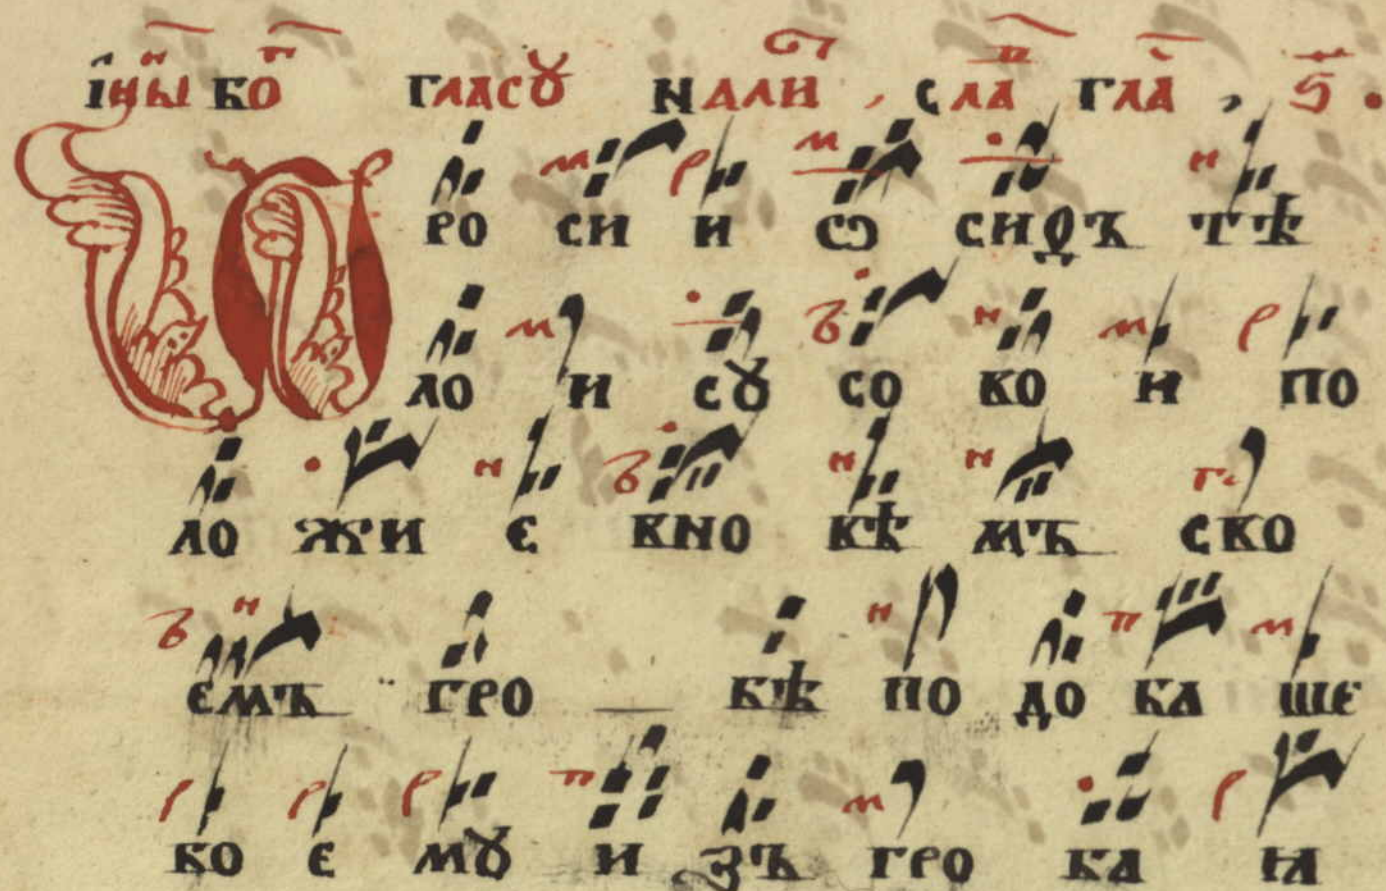 їн҃ы бо҃ гласꙋ нали҃ , сла҃ гла҃ , ѕ҃ .
Ѿ ро си и ѡ си ѳъ тѣ
ло и сꙋ со во и по
ло жи є вно вѣ мъ сво
ємъ гро вѣ по до ба ше
бо є мꙋ и зъ гро ба ꙗ